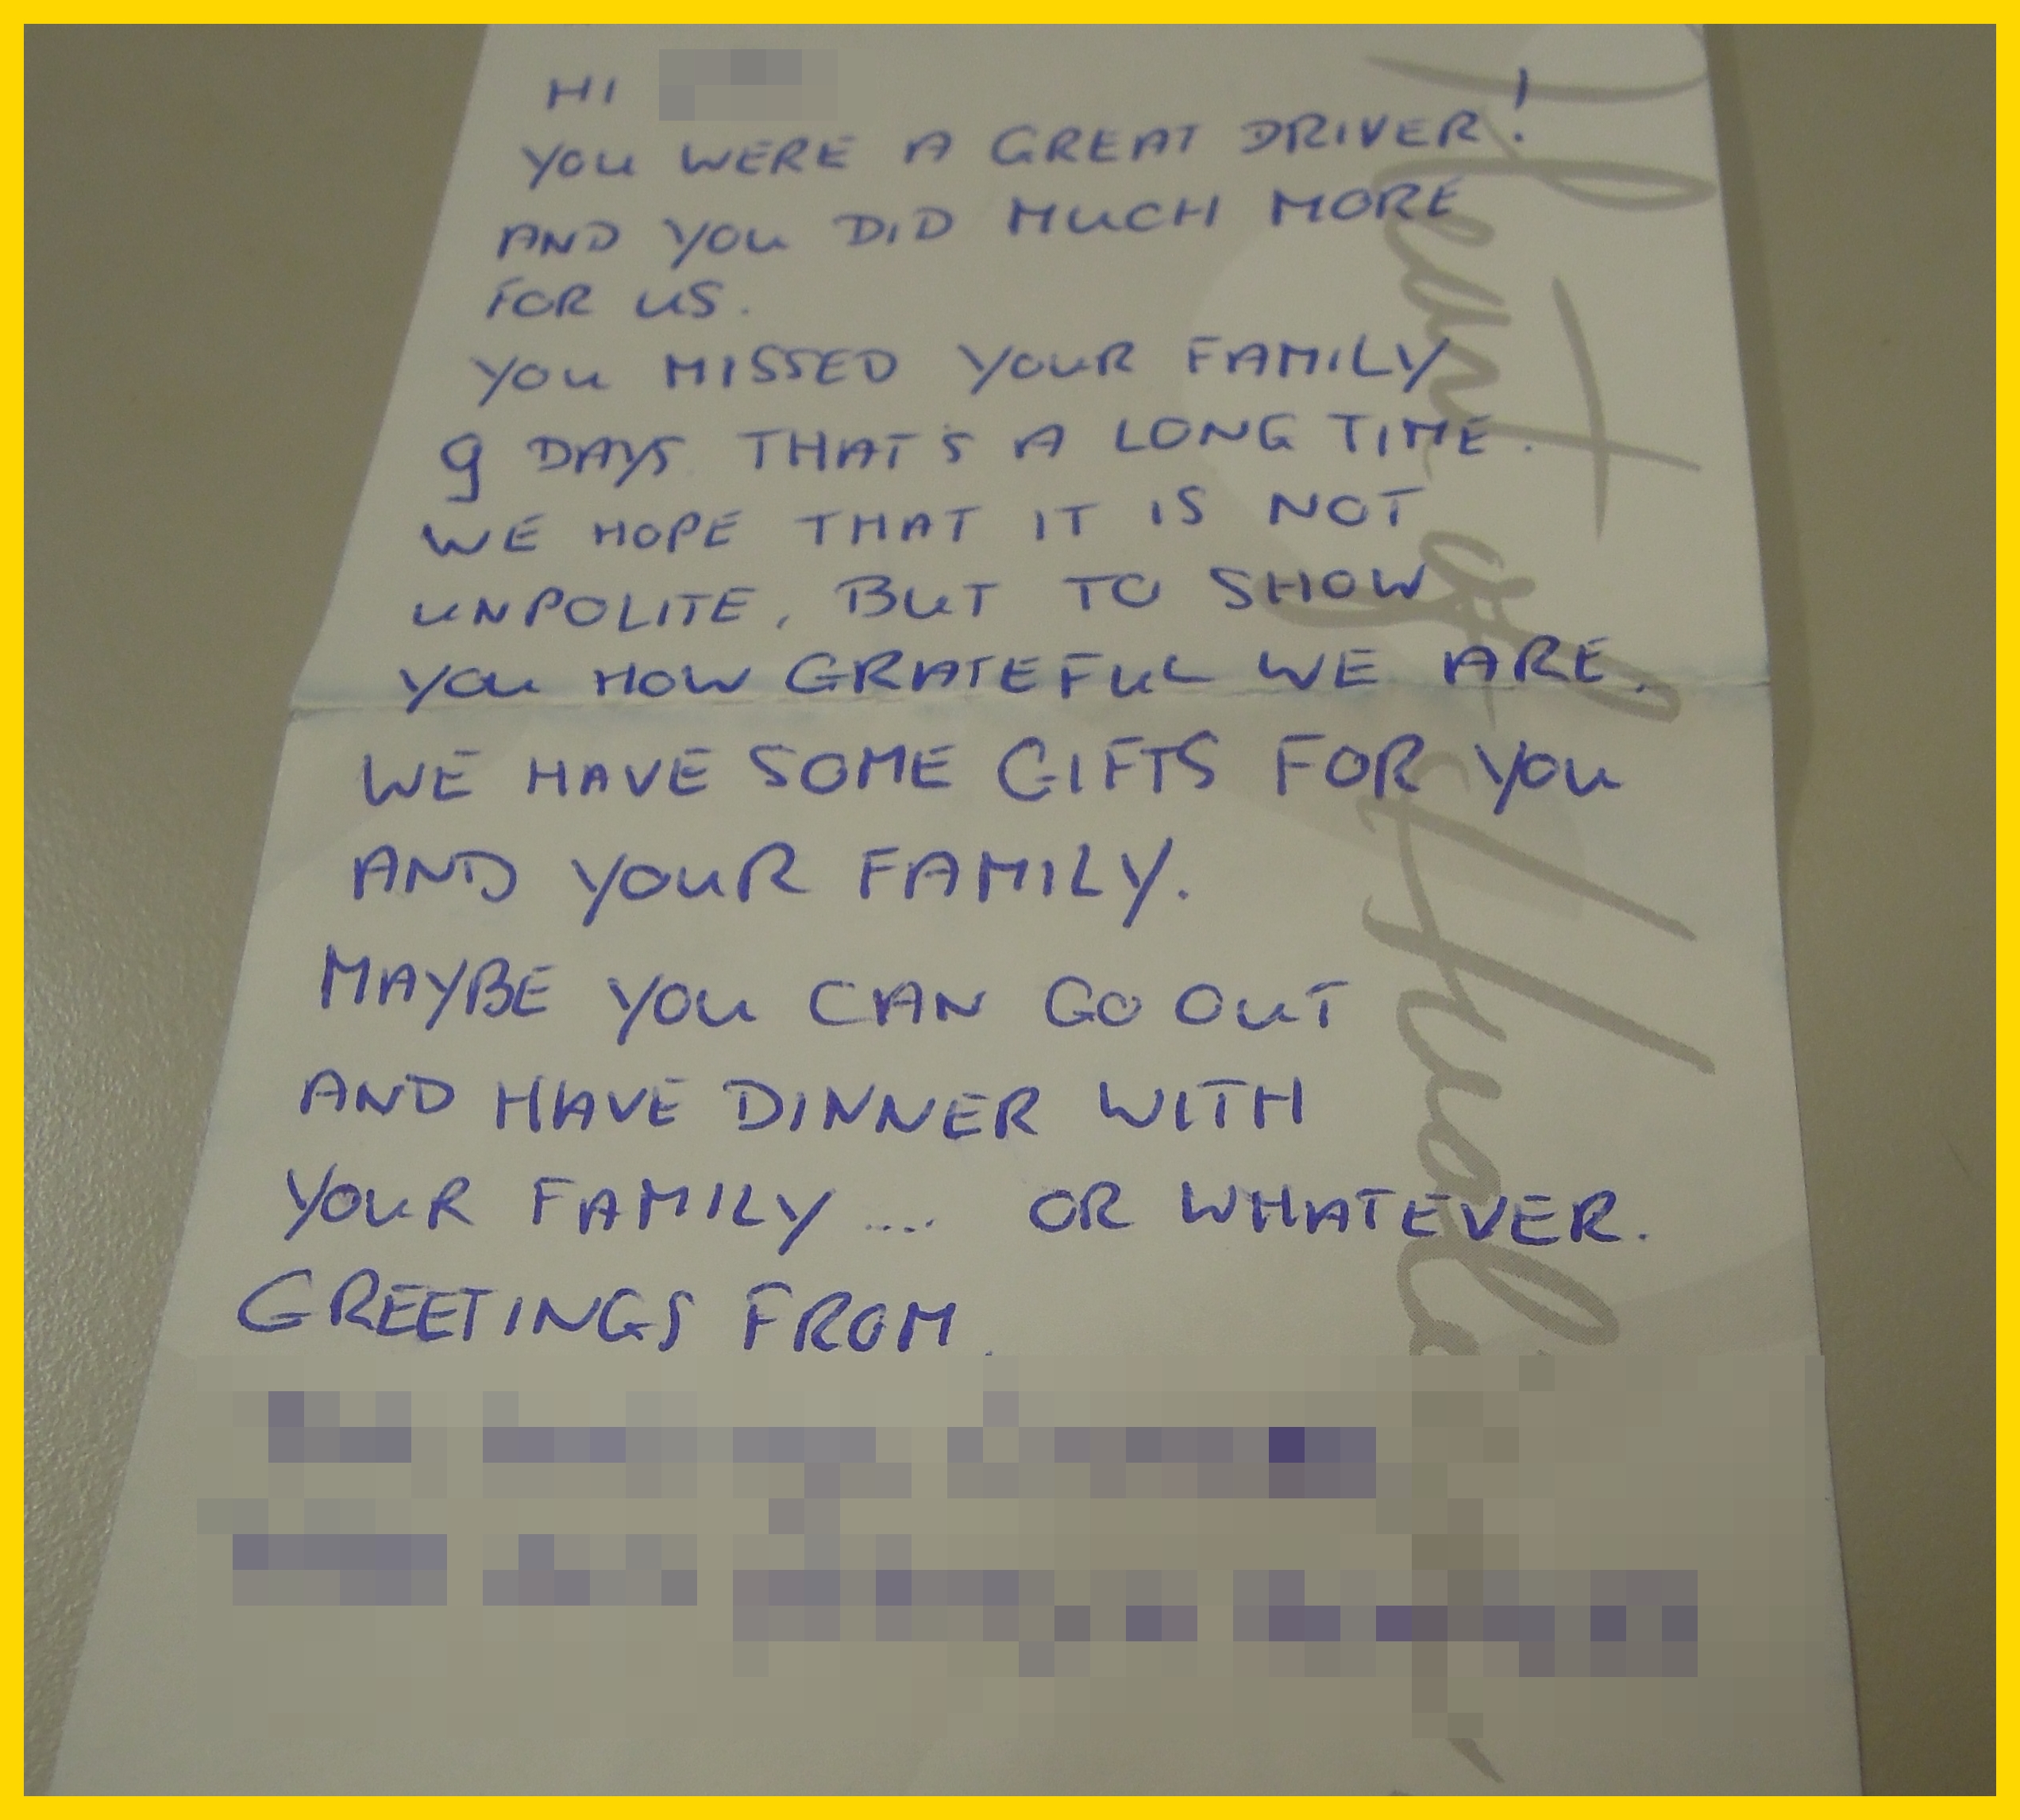 HI
YOU WERE A GREAT DRIVER!
AND YOU DID MUCH MORE
FOR US.
YOU MISSED YOUR FAMILY
9 DAYS THAT'S A LONG TIME.
WE HOPE THAT IT IS NOT
UNPOLITE, BUT TO SHOW
YOU HOW GRATEFUL WE ARE.
WE HAVE SOME GIFTS FOR YOU
AND YOUR FAMILY.
MAYBE YOU CAN GO OUT
AND HAVE DINNER WITH
YOUR FAMILY .... OR WHATEVER.
GREETINGS FROM